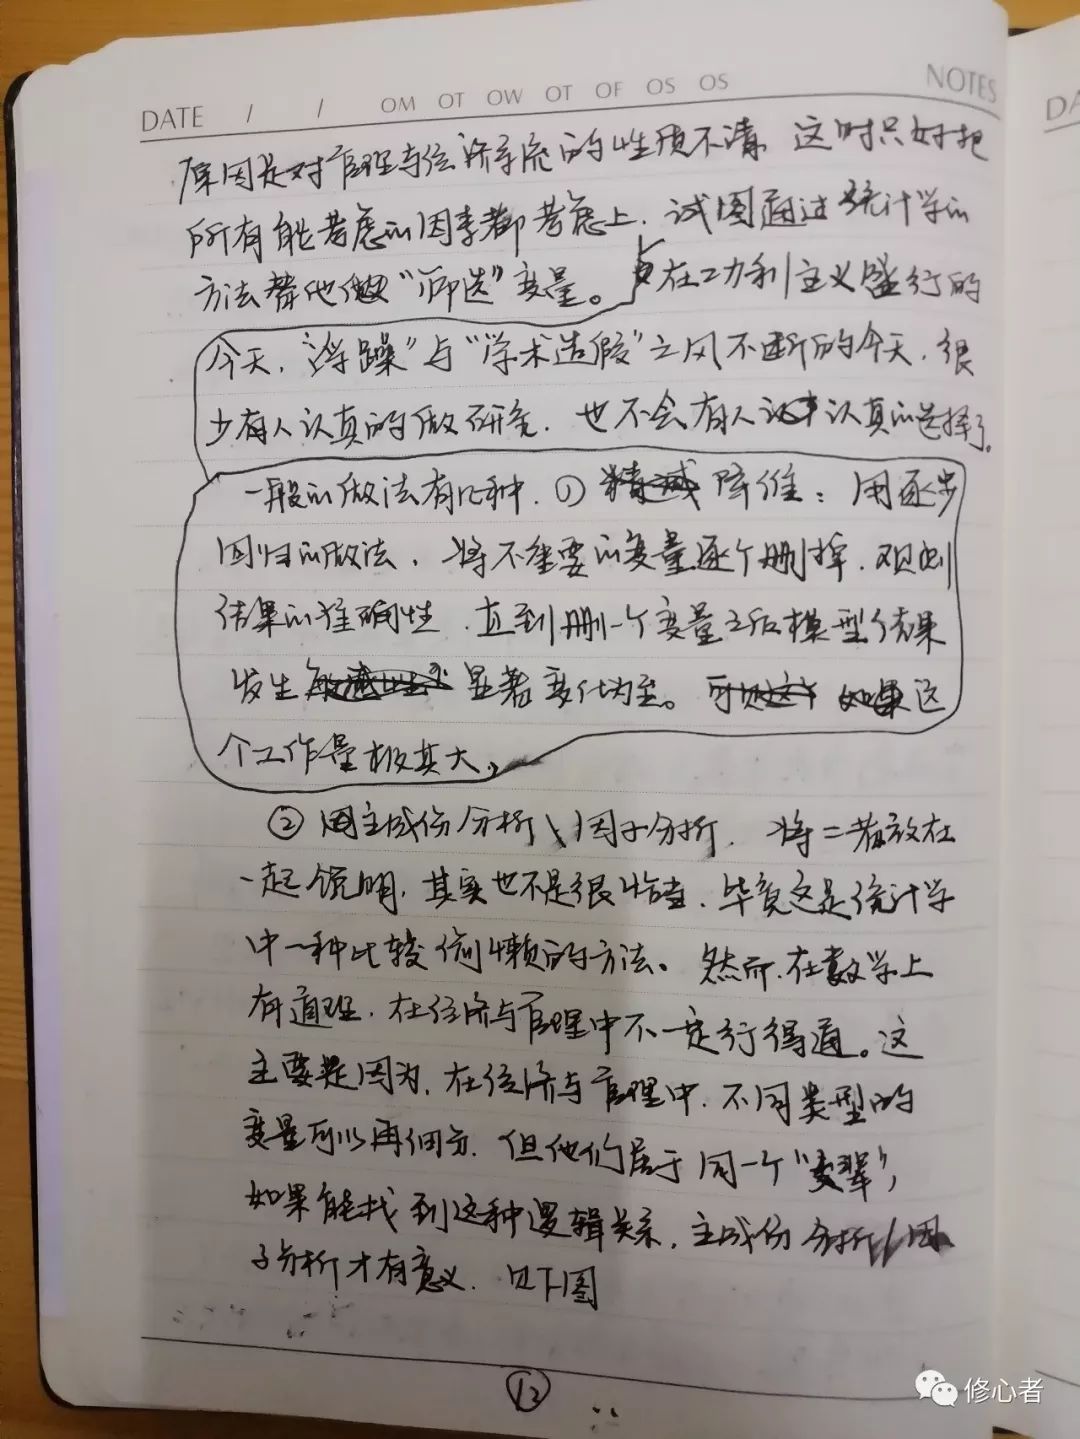 DATE / / OM OT OW OT OF OS OS NOTES
DA
原因是对管理与经济学流的性质不清,这时只好把
所有能考虑的因素都考虑上,试图通过统计学的
方法帮他做"筛选"变量。在功利主义盛行的
今天,"浮躁"与"学术造假"之风不断的今天,很
少有人认真的做研究,也不会有人认真的选择了。
一般的做法有几种,① 降维:用逐步
回归的做法,将不重要的变量逐个删掉,观测
结果的准确性,直到删一个变量之后模型结果
发生显著变化为至。这
个工作量极其大,
② 用主成份分析\因子分析,将二者放在
一起说明,其实也不是很恰当,毕竟这是统计学
中一种比较偷懒的方法。然而,在数学上
有道理,在经济与管理中不一定行得通。这
主要是因为,在经济与管理中,不同类型的
变量可以再细分,但他们属于同一个"
如果能找到这种逻辑关系,主成份分析/因
子分析才有意义,见下图
12
修心者